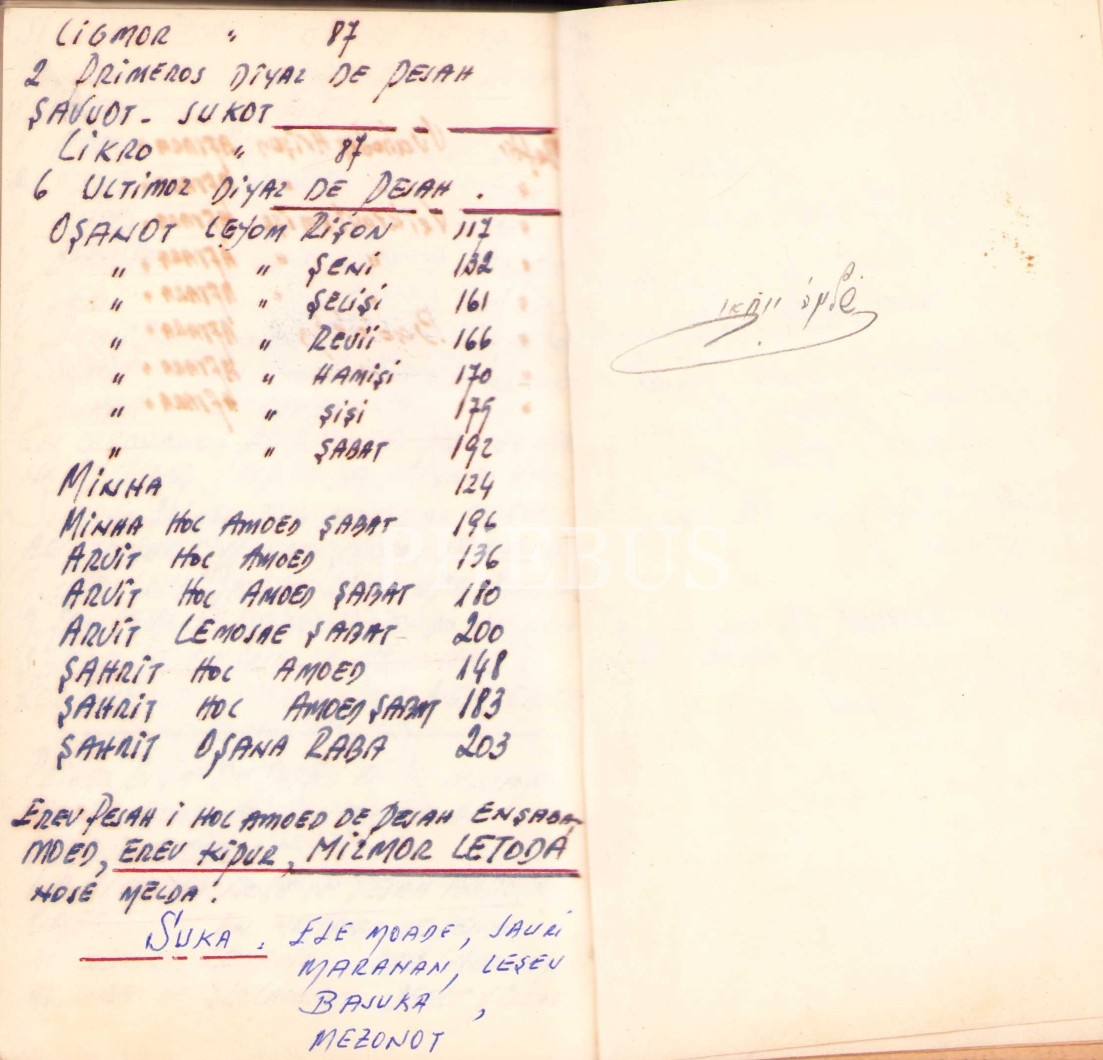 LİGMOR " 87
2 PRİMEROS DİYAZ DE PESAH
ŞAVUOT - SUKOT
LİKRO " 87
6 ULTİMOZ DİYAZ DE PESAH .
OŞANOT LEYOM RİŞON 117
" " ŞENİ 132
" " ŞELİŞİ 161
" " REVİİ 166
" " HAMİŞİ 170
" " ŞİŞİ 175
" " ŞABAT 192
MİNHA 124
MİNHA HOL AMOED ŞABAT 196
ARVİT HOL AMOED 136
ARVİT HOL AMOED ŞABAT 180
ARVİT LEMOSAE ŞABAT 200
ŞAHRİT HOL AMOED 148
ŞAHRİT HOL AMOED ŞABAT 183
ŞAHRİT OŞANA RABA 203
EREV PESAH İ HOL AMOED DE PESAH
MOED, EREV KİPUR, MİZMOR LETODA
NOSE MELDA.
SUKA : ELE MOADE, SAVRİ
MARANAN, LEŞEV
BASUKA ,
MEZONOT
PHEBUS